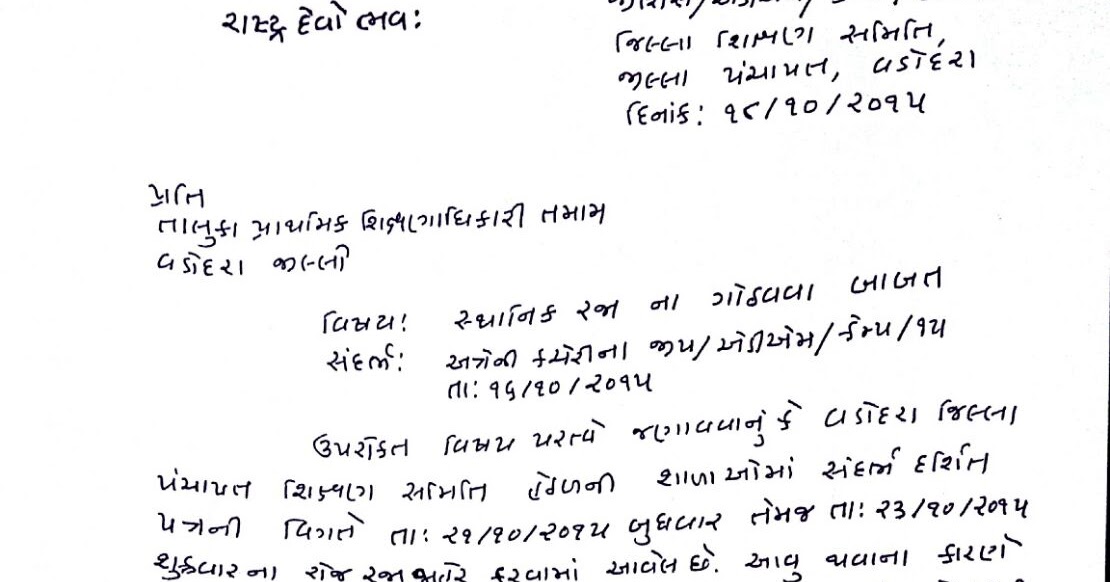 રાષ્ટ્ર દેવો ભવ:
જિલ્લા શિક્ષણ સમિતિ,
જીલ્લા પંચાયત, વડોદરા
દિનાંક: ૧૯/૧૦/૨૦૧૫
પ્રતિ
તાલુકા પ્રાથમિક શિક્ષણાધિકારી તમામ
વડોદરા જીલ્લી
વિષય: સ્થાનિક રજા ના ગોઠવવા બાબત
સંદર્ભ: અત્રેની કચેરીના જીપ/એડીએમ/કેમ્પ/૧૫
તા: ૧૬/૧૦/૨૦૧૫
ઉપરોકત વિષય પરત્વે જણાવવાનું કે વડોદરા જિલ્લા
પંચાયત શિક્ષણ સમિતિ હેઠળની શાળાઓમાં સંદર્ભ દર્શિત
પત્રની વિગતે તા: ૨૧/૧૦/૨૦૧૫ બુધવાર તેમજ તા: ૨૩/૧૦/૨૦૧૫
શુક્રવાર ના રોજ રજા જાહેર કરવામાં આવેલ છે. આવુ થવાના કારણે